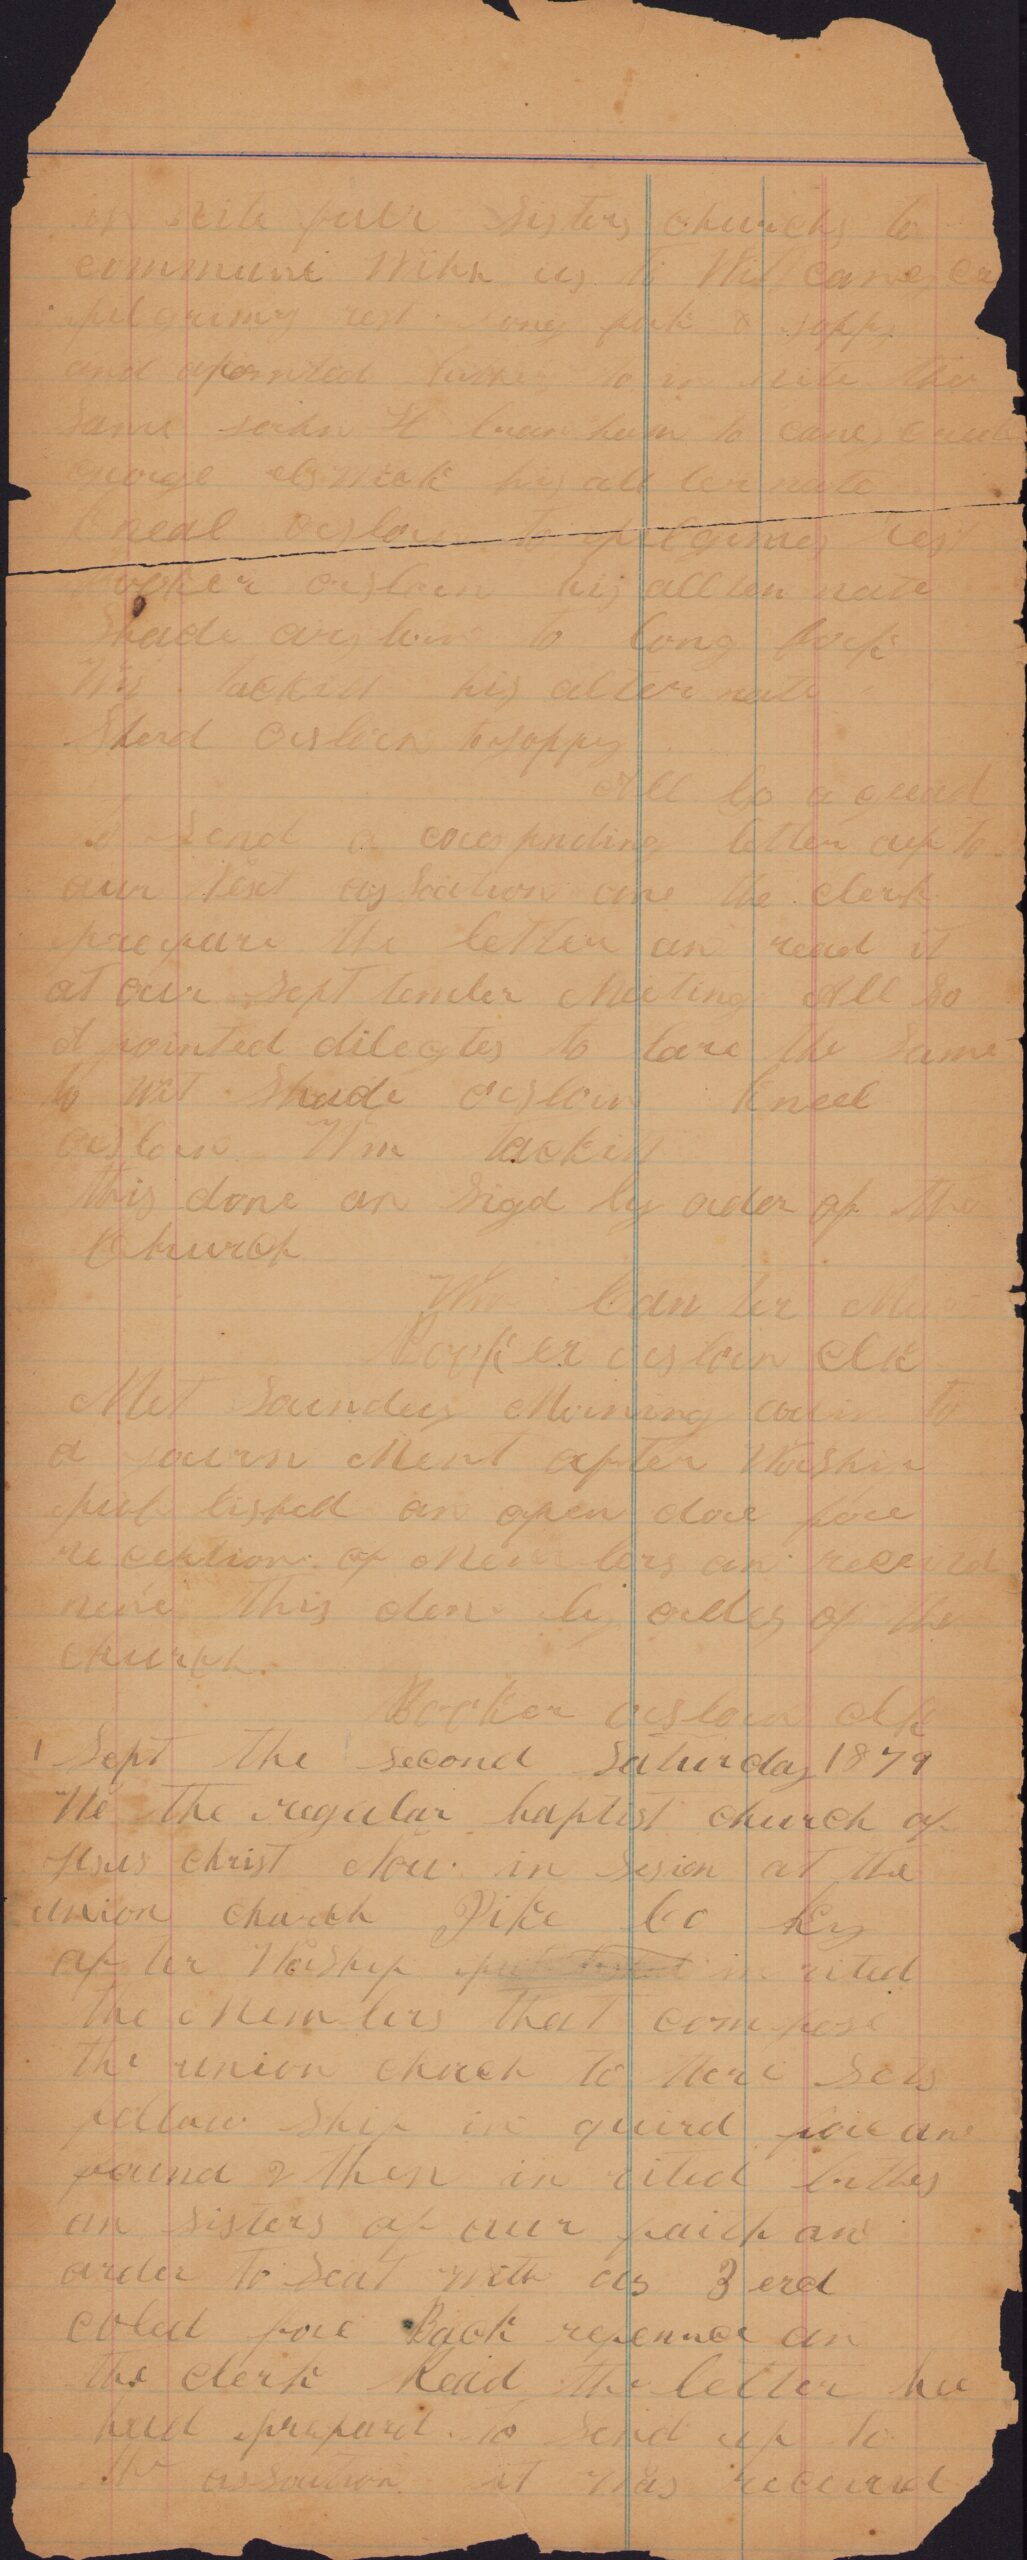 in vite four Sisters churchs to
communi With us to Wit cane, Cr
pilgrims rest. long fork & joppy
and apointed to in vite the
same John H bran ham to caney creek
george his alt ter nate
Kneal oisborn to pilgrimes rest
Booker oisborn his alltern nate
Shade oisborn to long fork
Wm tackitt his alter nate
Sherd Oisborn to joppy
All so a greed
to Send a coresponding letter up to
our next assoation ane the clerk
prepare the letter an read it
at our Sept tember Meeting All so
A pointed dilegtes to bare the same
to wit Shade oisborn Kneel
oisborn Wm tackitt
this done an Sigd by order of the
Church
Wm
Booker oisborn Clk
Met Saundays Morning acorn to
a journ Ment after Worship
pub lished an open dore fore
re ception of Mem bers an receivd
none this don by orders of the
church.
Booker oisborn clk
Sept the second Saturday 1879
We the regular baptist church of
Jesus christ Now in Sesion at the
union church Pike Co Ky
af ter Worship in vited
the Mem bers that com pose
the union church to there Sets
fellow Ship in quird fore an
found & then in vited brthes
an Sisters of our faith an
order to Seat with us 3 erd
coled fore Back repennce an
the clerk Read the letter hee
had prepard to Send up to
the assoation it was received